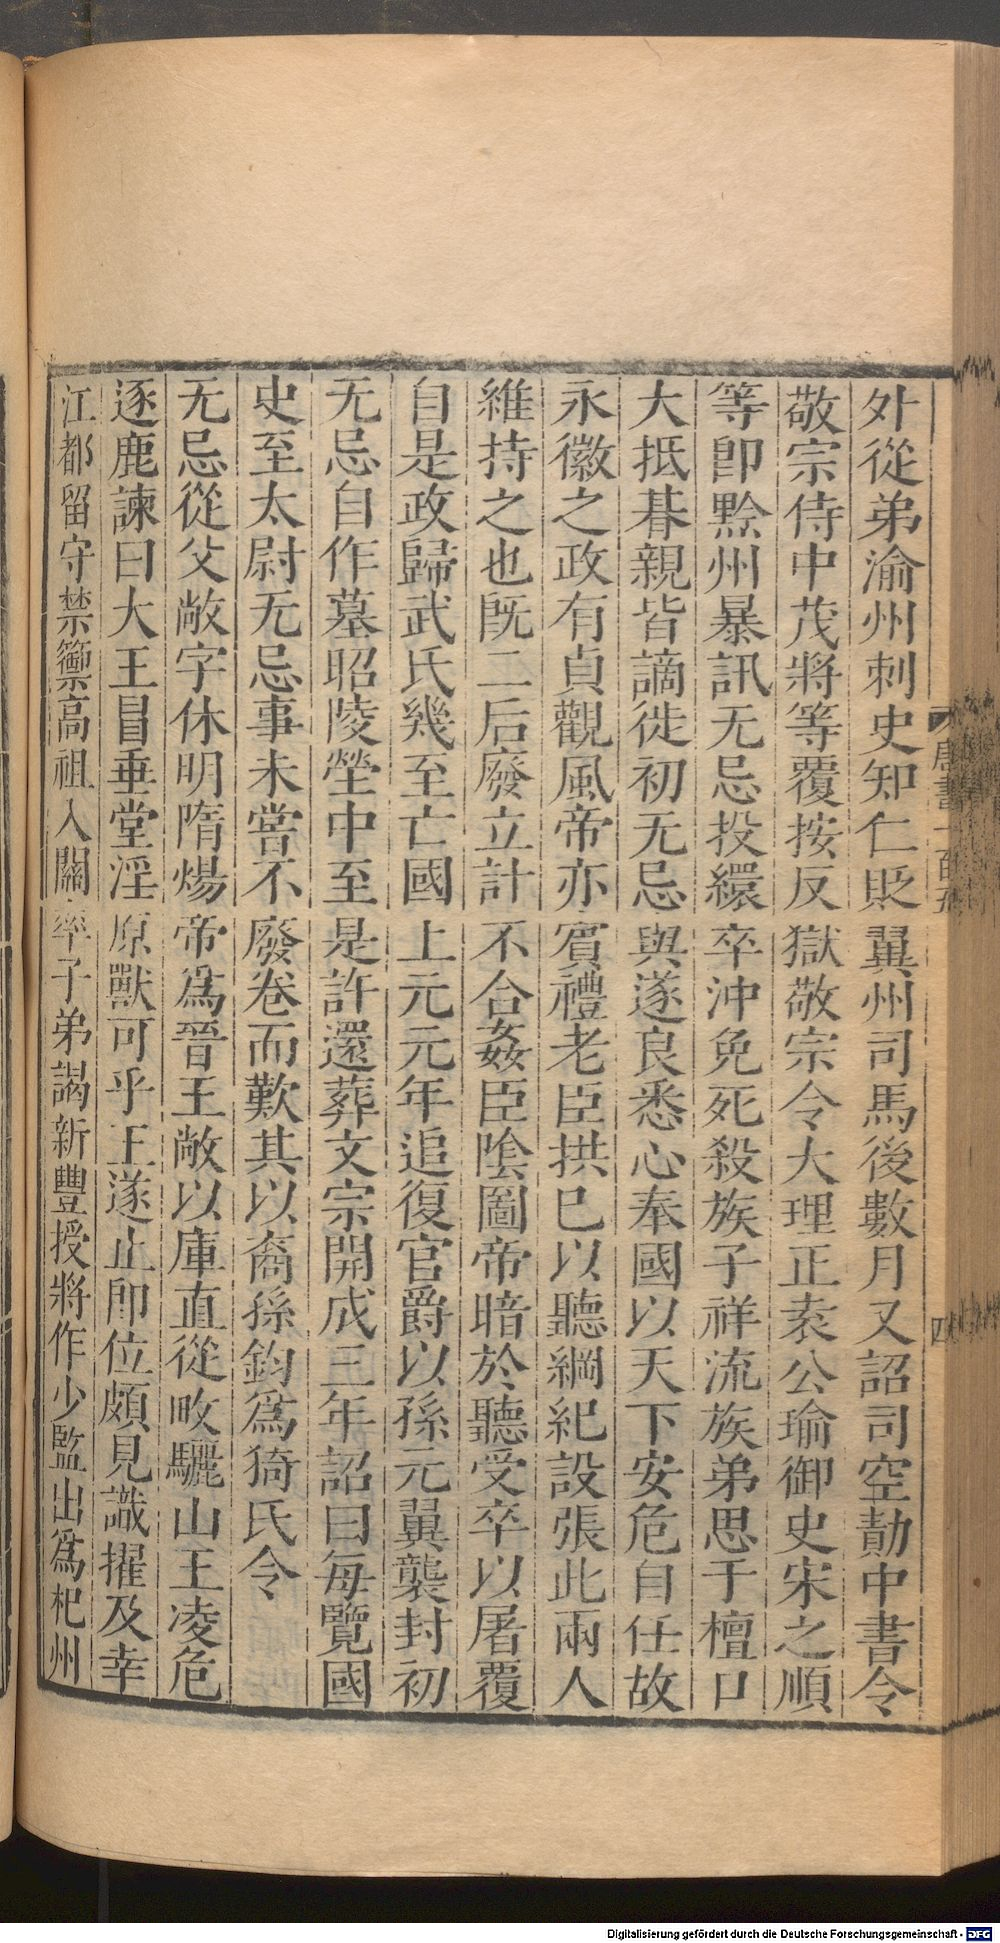 外從弟渝州刺史知仁貶翼州司馬後數月又詔司空勣中書令
敬宗侍中茂將等覆按反獄敬宗令大理正袁公瑜御史宋之順
等卽黔州暴訊无忌投繯卒沖免死殺族子祥流族弟思于檀口
大抵朞親皆謫徙初无忌與遂良悉心奉國以天下安危自任故
永徽之政有貞觀風帝亦賓禮老臣拱巳以聽綱紀設張此兩人
維持之也旣二后廢立計不合姦臣陰圖帝暗於聽受卒以屠覆
自是政歸武氏幾至亡國上元元年追復官爵以孫元翼襲封初
无忌自作墓昭陵塋中至是許還葬文宗開成三年詔曰每覽國
史至太尉无忌事未嘗不廢卷而歎其以裔孫鈞爲猗氏令
无忌從父敞字休明隋煬帝爲晉王敞以庫直從畋驪山王凌危
逐鹿諫曰大王冒垂堂淫原獸可乎王遂止卽位頗見識擢及幸
江都留守禁籞高祖入關率子弟謁新豐授將作少監出爲杞州
唐書一百五
四
Digitalisierung gefördert durch die Deutsche Forschungsgemeinschaft - DFG